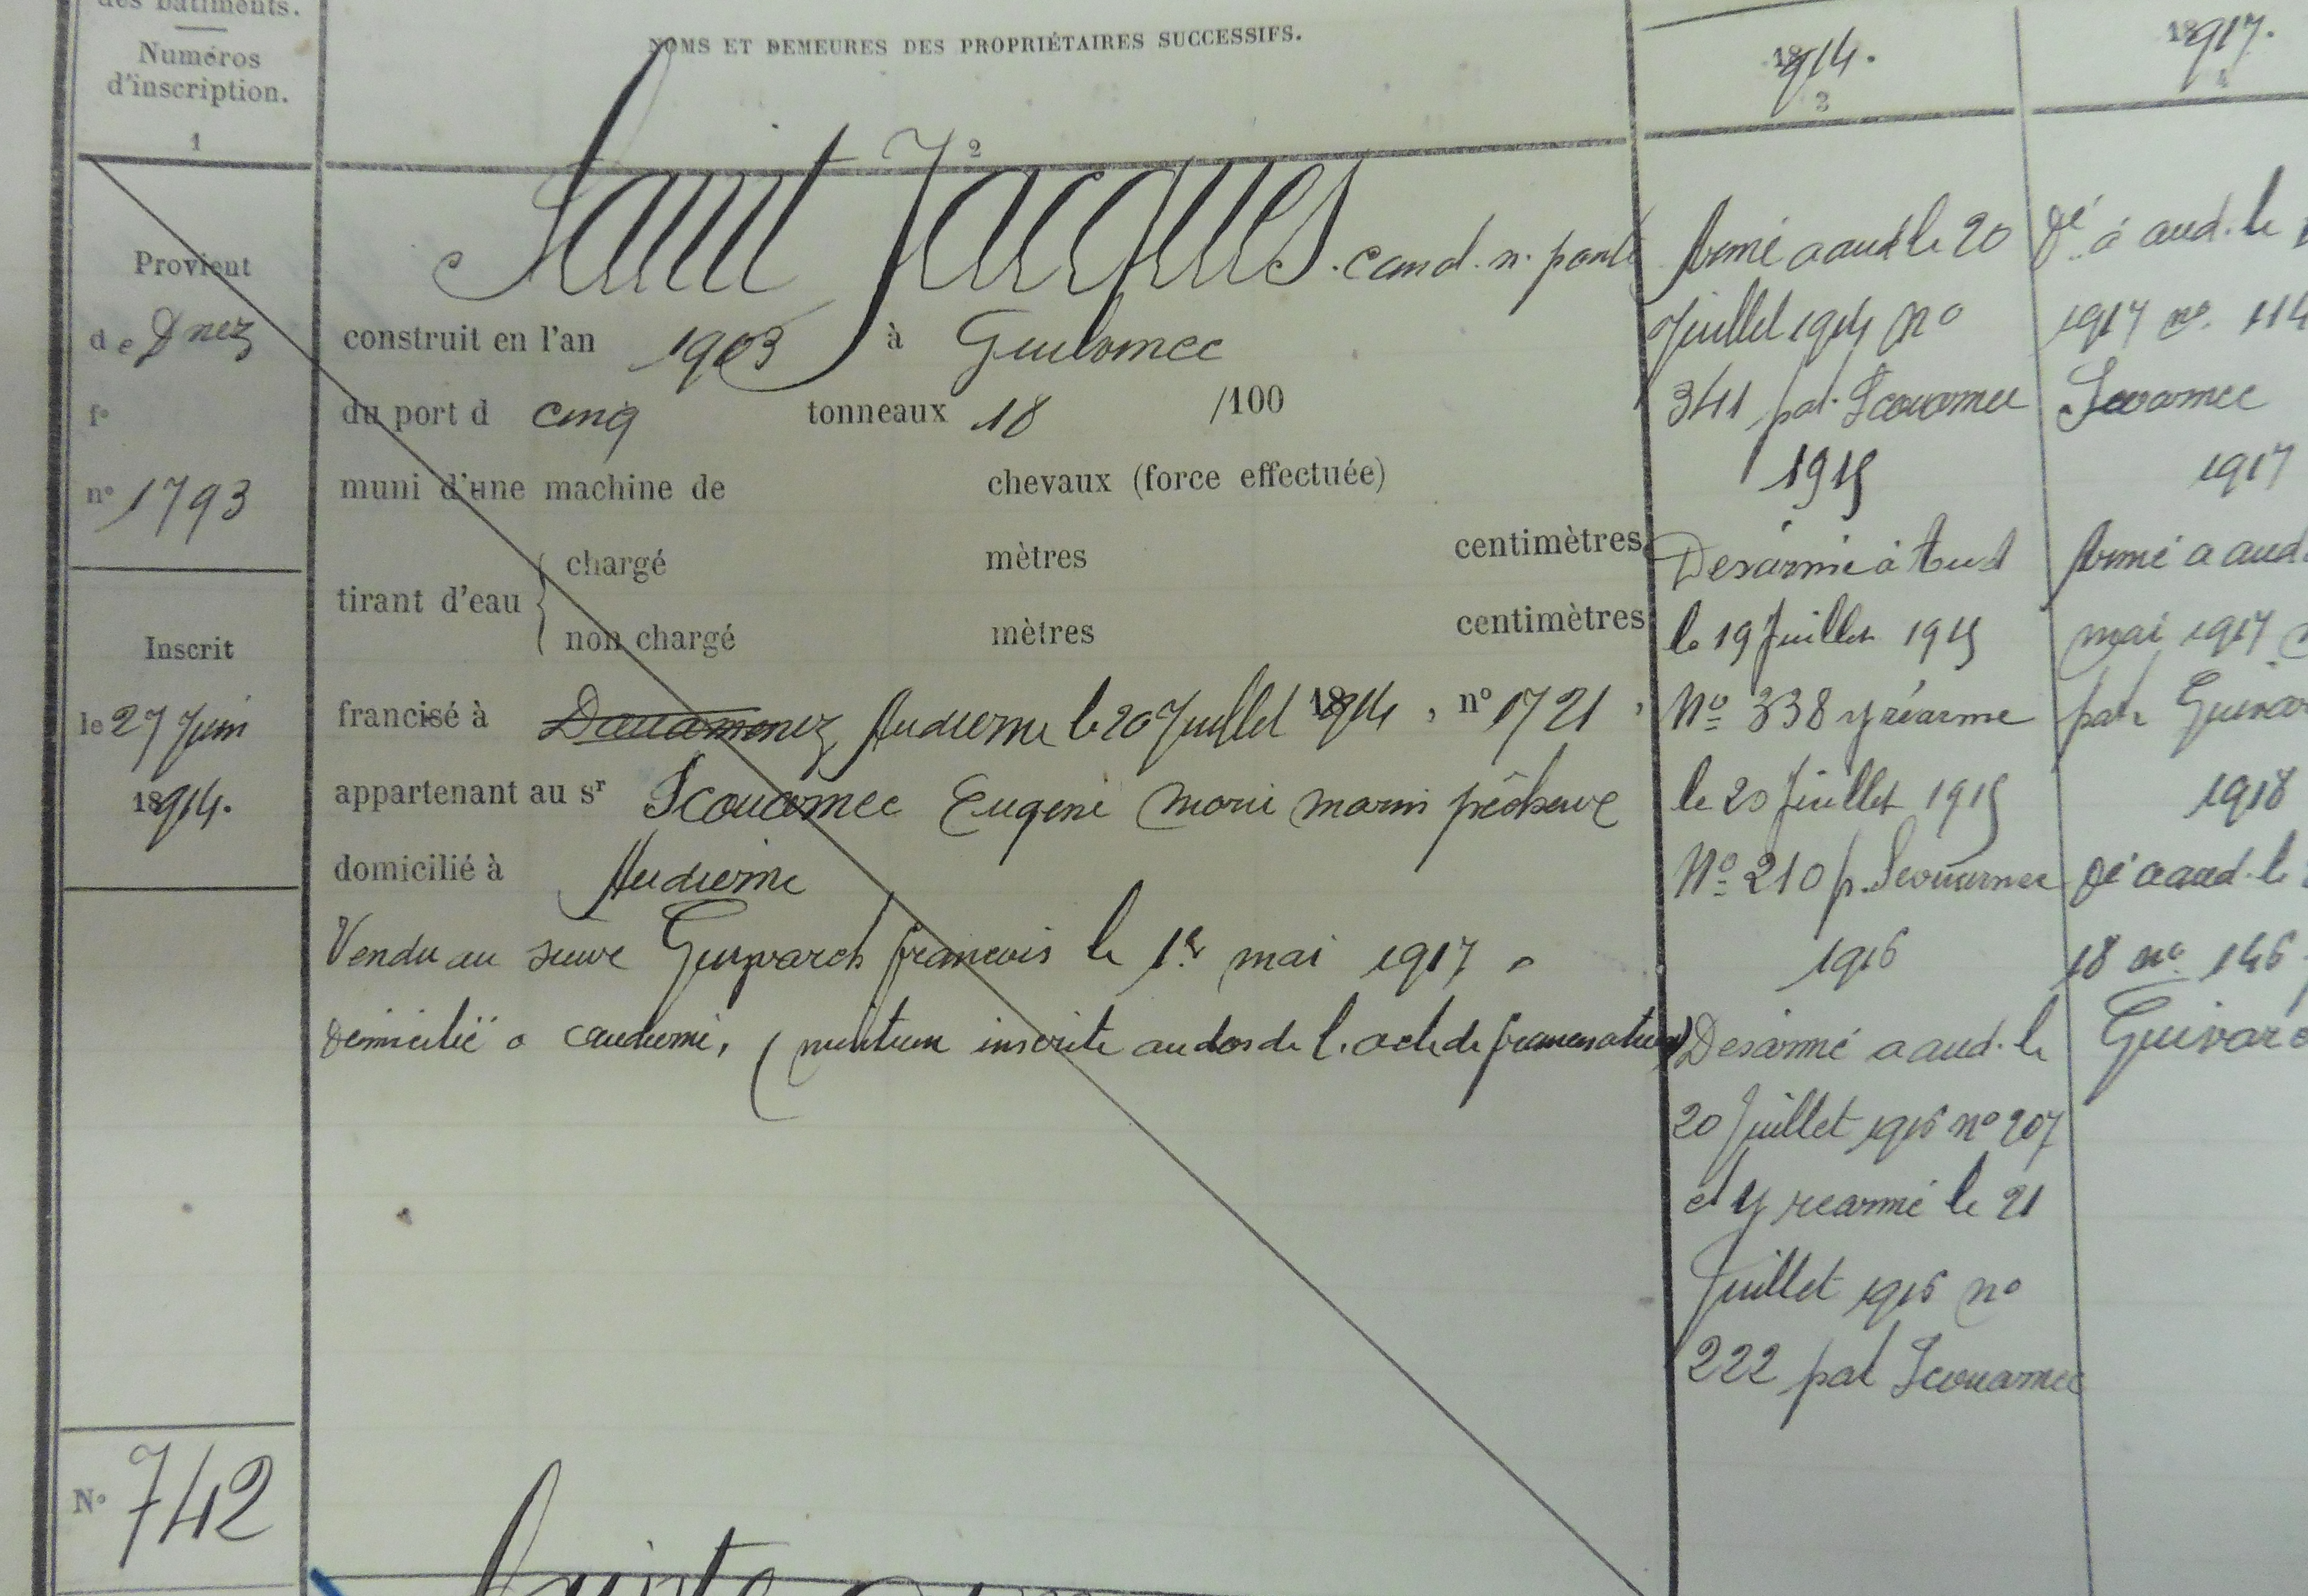 des bâtiments.
Numéros
d'inscription.
1
Provient
de Dnez
fº
nº 1793
Inscrit
le 27 Juin
1914.
Nº 742
NOMS ET DEMEURES DES PROPRIÉTAIRES SUCCESSIFS.
2
Saint Jacques. cand. n. ponté
construit en l'an 1903 à Guilvinec
du port d cinq tonneaux 18 /100
muni d'une machine de chevaux (force effectuée)
tirant d'eau
chargé mètres centimètres
non chargé mètres centimètres
francisé à Douarnenez Audierne le 20 Juillet 1914, nº 1721,
appartenant au sr Scouarnec Eugène Marie marin pêcheur
domicilié à Audierne
Vendu au sieur Guivarch francois le 1er mai 1917
domicilié a audierne, (inscrite au dos de l'acte de francisation)
Sainte
1914.
3
Armé a aud le 20
Juillet 1914 Nº
341 pat. Scouarnec
1915
Desarmé à Aud
le 19 Juillet 1915
Nº 338 y réarmé
le 20 Juillet 1915
Nº 210 p. Scouarnec
1916
Desarmé a aud. le
20 Juillet 1916 nº 207
et y rearmé le 21
Juillet 1916 nº
222 pat Scouarnec
1917.
4
Dé à aud. le
1917 nº 114
Scouarnec
1917
Armé a aud.
mai 1917
pat Guivar
1918
Dé a aud. le
18 nº 146
Guivarc